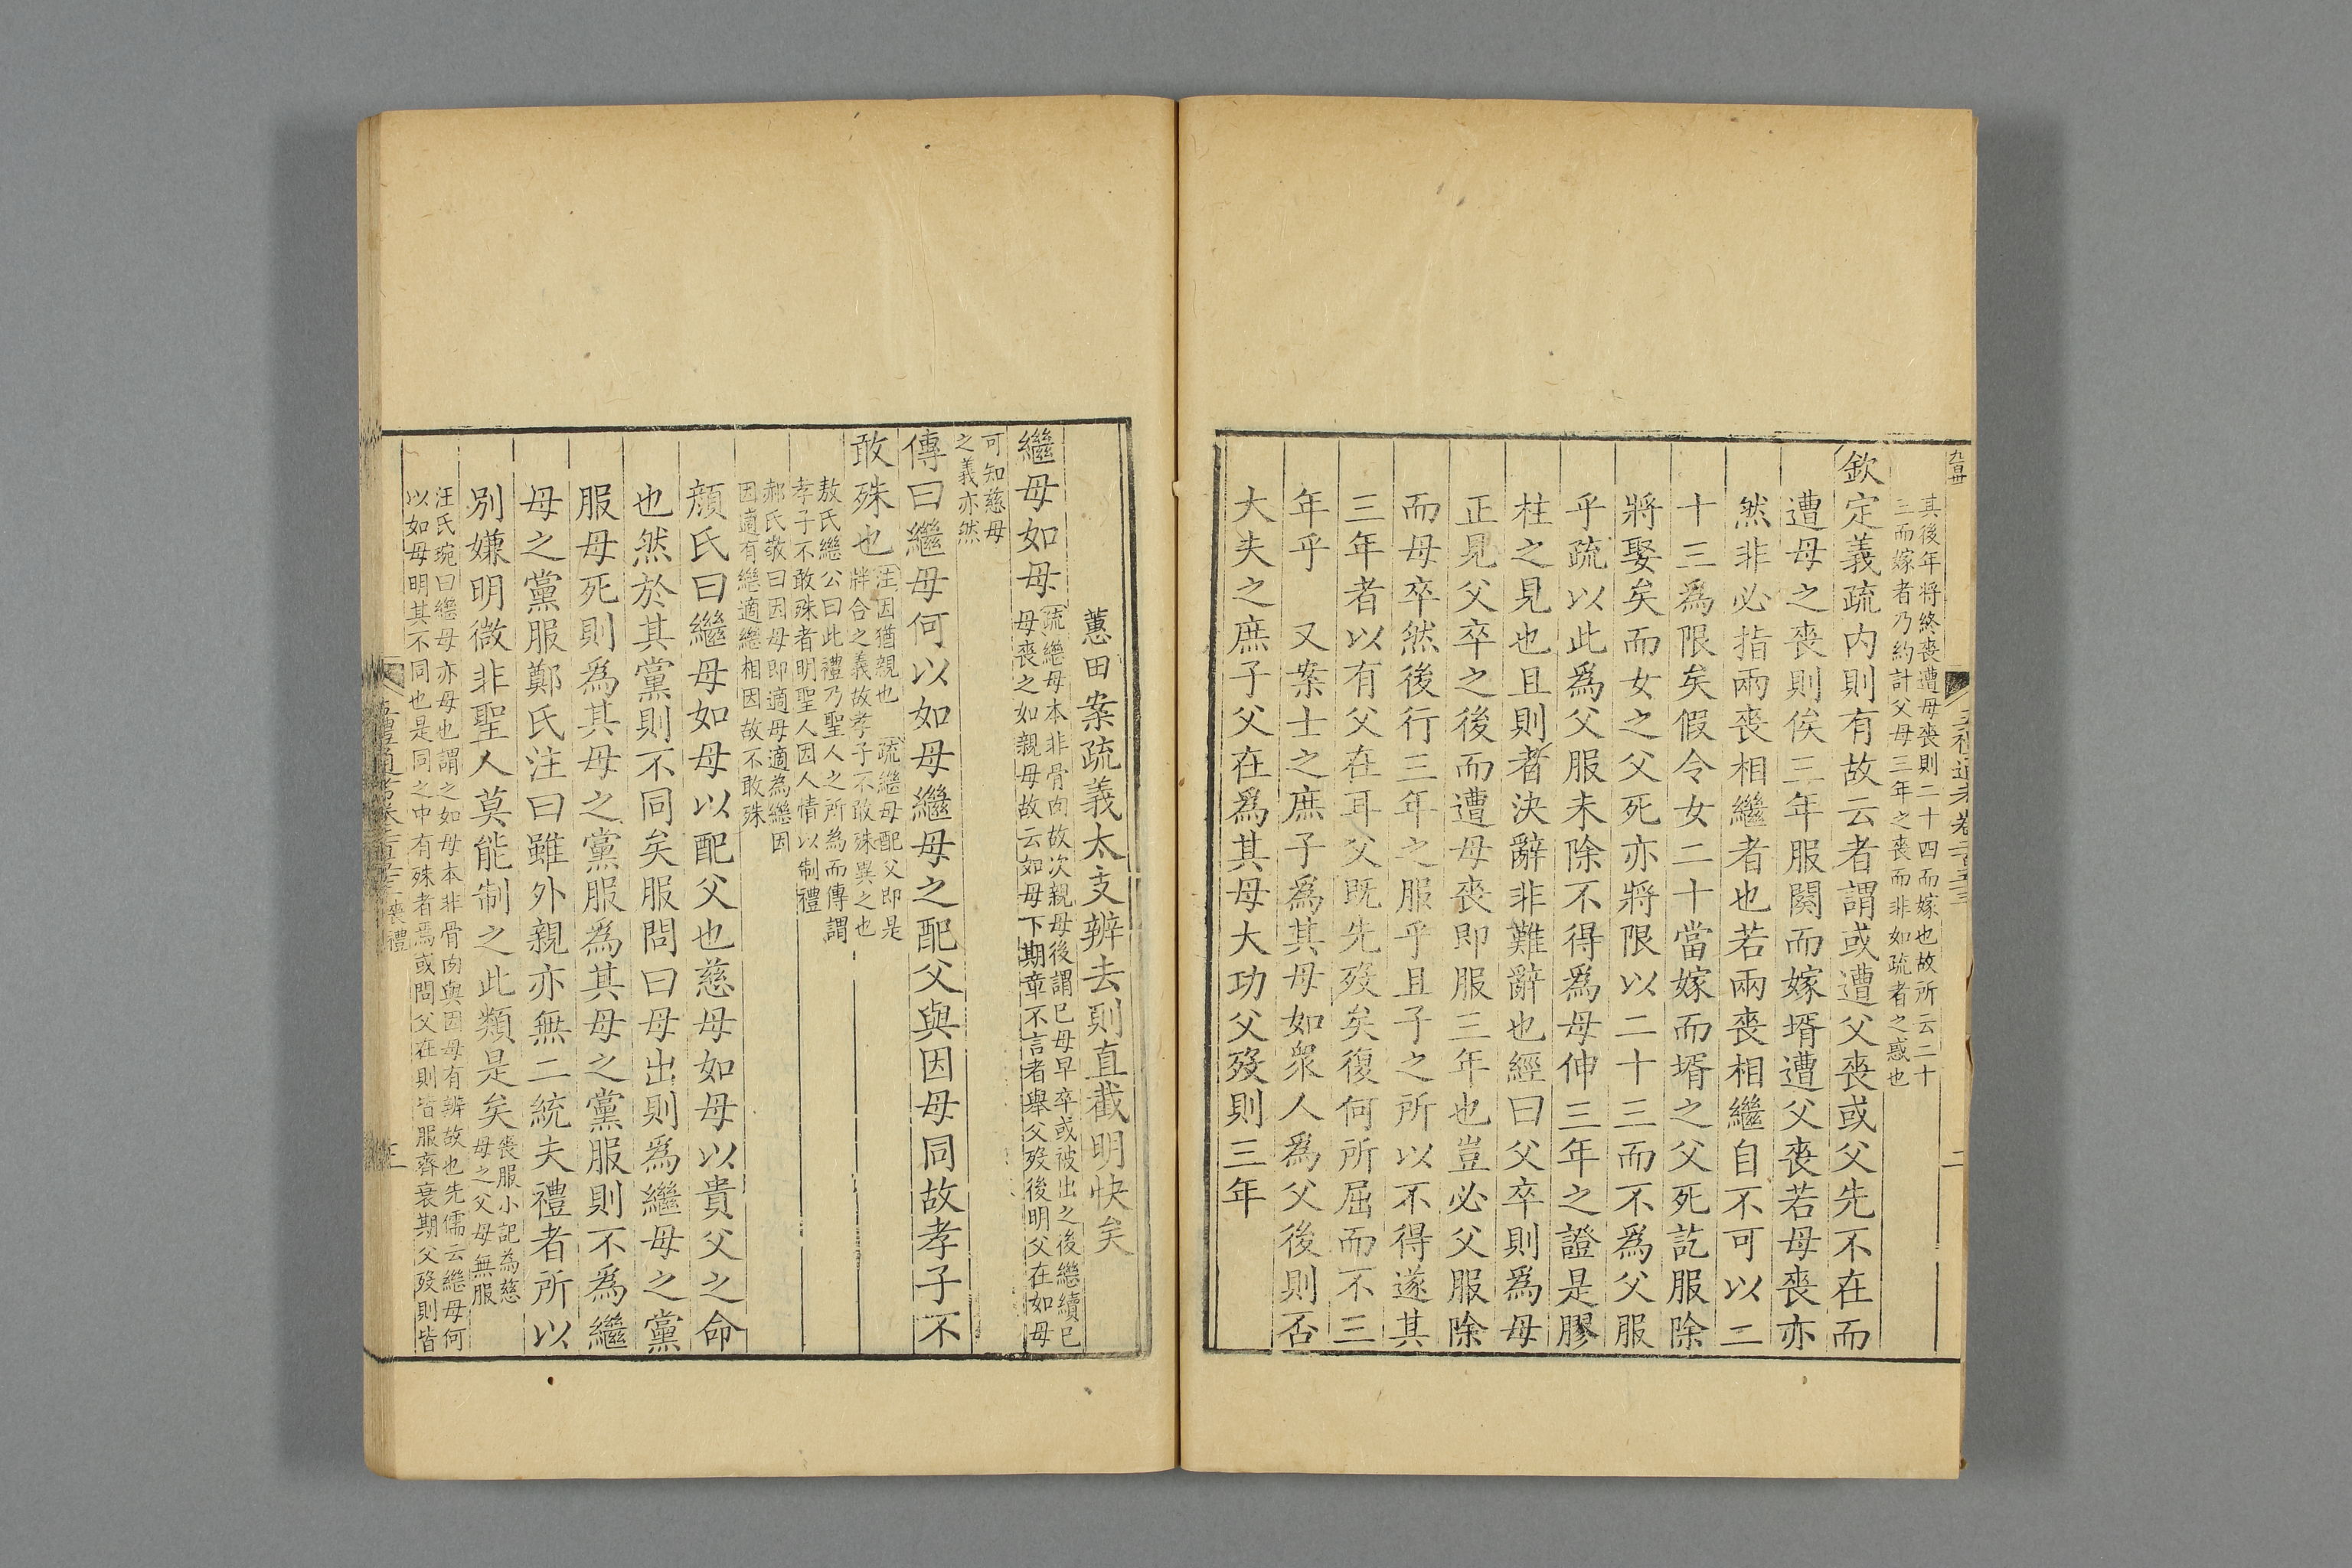 其後年將終喪遭母喪則二十四而嫁也故所云二十
三而嫁者乃約計父母三年之喪而非如疏者之惑也
欽定義疏内則有故云者謂或遭父喪或父先不在而
遭母之喪則俟三年服闋而嫁壻遭父喪若母喪亦
然非必指兩喪相繼者也若兩喪相繼自不可以二
十三爲限矣假令女二十當嫁而壻之父死訖服除
將娶矣而女之父死亦將限以二十三而不爲父服
乎疏以此爲父服未除不得爲母伸三年之證是膠
柱之見也且則者決辭非難辭也經曰父卒則爲母
正見父卒之後而遭母喪即服三年也豈必父服除
而母卒然後行三年之服乎且子之所以不得遂其
三年者以有父在耳父既先歿矣復何所屈而不三
年乎　又案士之庶子爲其母如衆人爲父後則否
大夫之庶子父在爲其母大功父歿則三年
蕙田案疏義太支辨去則直截明快矣
繼母如母
疏繼母本非骨肉故次親母後謂已母早卒或被出之後繼續已
母喪之如親母故云如母下期章不言者舉父歿後明父在如母
可知慈母
之義亦然
傳曰繼母何以如母繼母之配父與因母同故孝子不
敢殊也
注因猶親也　疏繼母配父即是
牉合之義故孝子不敢殊異之也
敖氏繼公曰此禮乃聖人之所為而傳謂
孝子不敢殊者明聖人因人情以制禮
郝氏敬曰因母即適母適為繼因
因適有繼適繼相因故不敢殊
顔氏曰繼母如母以配父也慈母如母以貴父之命
也然於其黨則不同矣服問曰母出則爲繼母之黨
服母死則爲其母之黨服為其母之黨服則不爲繼
母之黨服鄭氏注曰雖外親亦無二統夫禮者所以
別嫌明微非聖人莫能制之此類是矣
喪服小記為慈
母之父母無服
汪氏琬曰繼母亦母也謂之如母本非骨肉與因母有辨故也先儒云繼母何
以如母明其不同也是同之中有殊者焉或問父在則皆服齊衰期父歿則皆
五禮通考卷二百五十三 喪禮
三